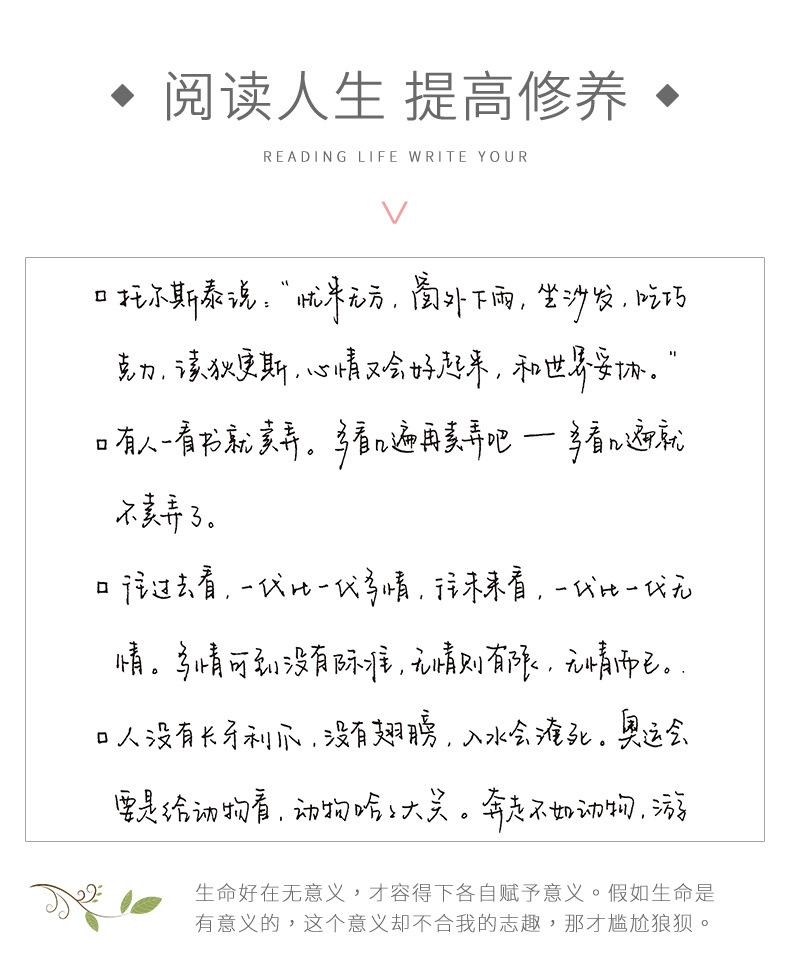 阅读人生 提高修养
READING LIFE WRITE YOUR
托尔斯泰说:“忧来无方,窗外下雨,坐沙发,吃巧
克力,读狄更斯,心情又会好起来,和世界妥协。”
有人一看书就卖弄。多看几遍再卖弄吧 — 多看几遍就
不卖弄了。
往过去看,一代比一代多情,往未来看,一代比一代无
情。多情可到没有际涯,无情则有限,无情而已。
人没有长牙利爪,没有翅膀,入水会淹死。奥运会
要是给动物看,动物哈々大笑。奔走不如动物,游
生命好在无意义,才容得下各自赋予意义。假如生命是
有意义的,这个意义却不合我的志趣,那才尴尬狼狈。